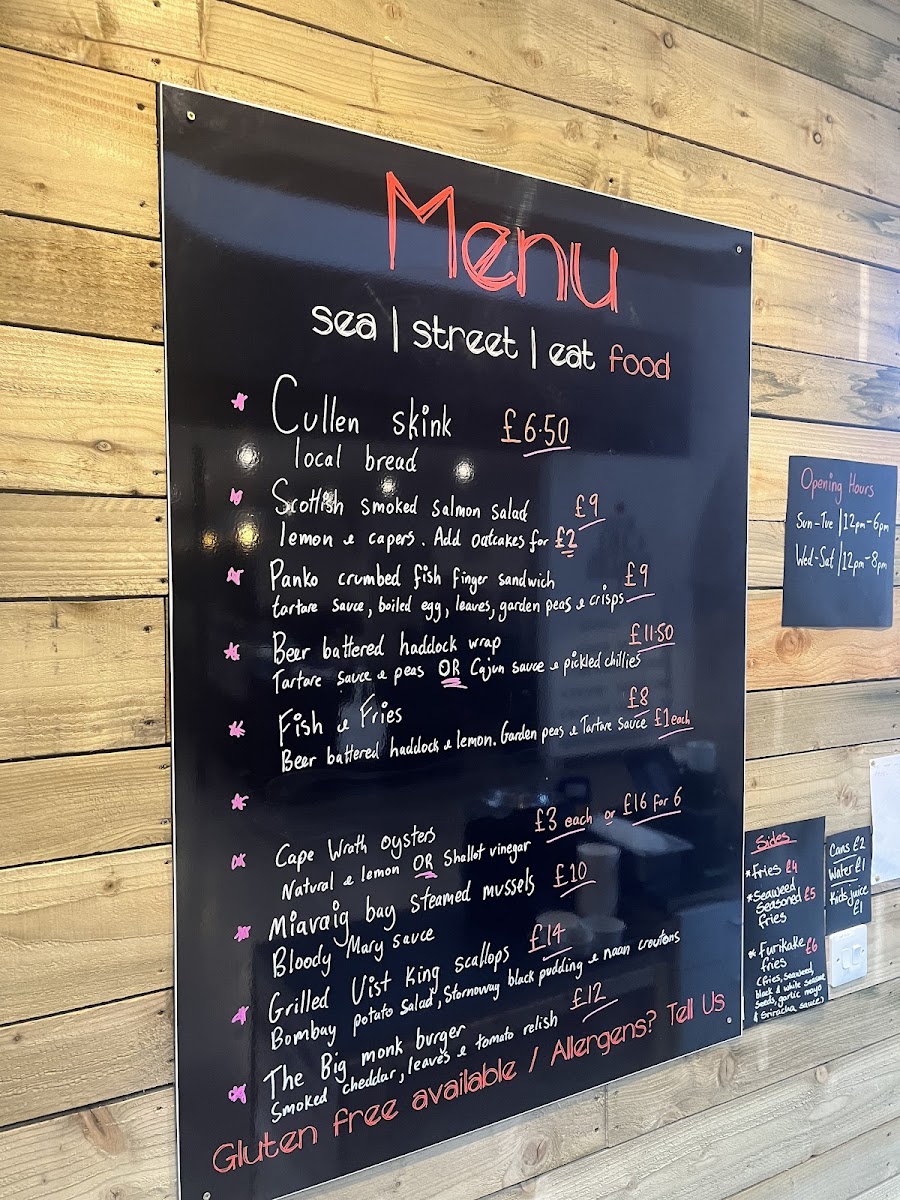 Menu
sea | street | eat food
Cullen skink £6.50
local bread
Scottish smoked salmon salad £9
lemon & capers. Add oatcakes for £2
Panko crumbed fish finger sandwich £9
tartare sauce, boiled egg, leaves, garden peas & crisps
Beer battered haddock wrap £11.50
Tartare sauce & peas OR Cajun sauce & pickled chillies
Fish & Fries £8
Beer battered haddock & lemon. Garden peas & Tartare sauce £1 each
Cape Wrath oysters £3 each or £16 for 6
Natural & lemon OR Shallot vinegar
Miavaig bay steamed mussels £10
Bloody Mary sauce
Grilled Uist King scallops £14
Bombay potato salad, Stornoway black pudding & naan croutons
The Big monk burger £12
Smoked cheddar, leaves & tomato relish
Gluten free available / Allergens? Tell Us
Opening Hours
Sun-Tue | 12pm-6pm
Wed-Sat | 12pm-8pm
Sides
*Fries £4
*Seaweed
Seasoned £5
fries
*Furikake £6
fries
(fries, seaweed,
black & white sesame
seeds, garlic mayo
& Sriracha sauce)
Cans £2
Water £1
Kids juice
£1